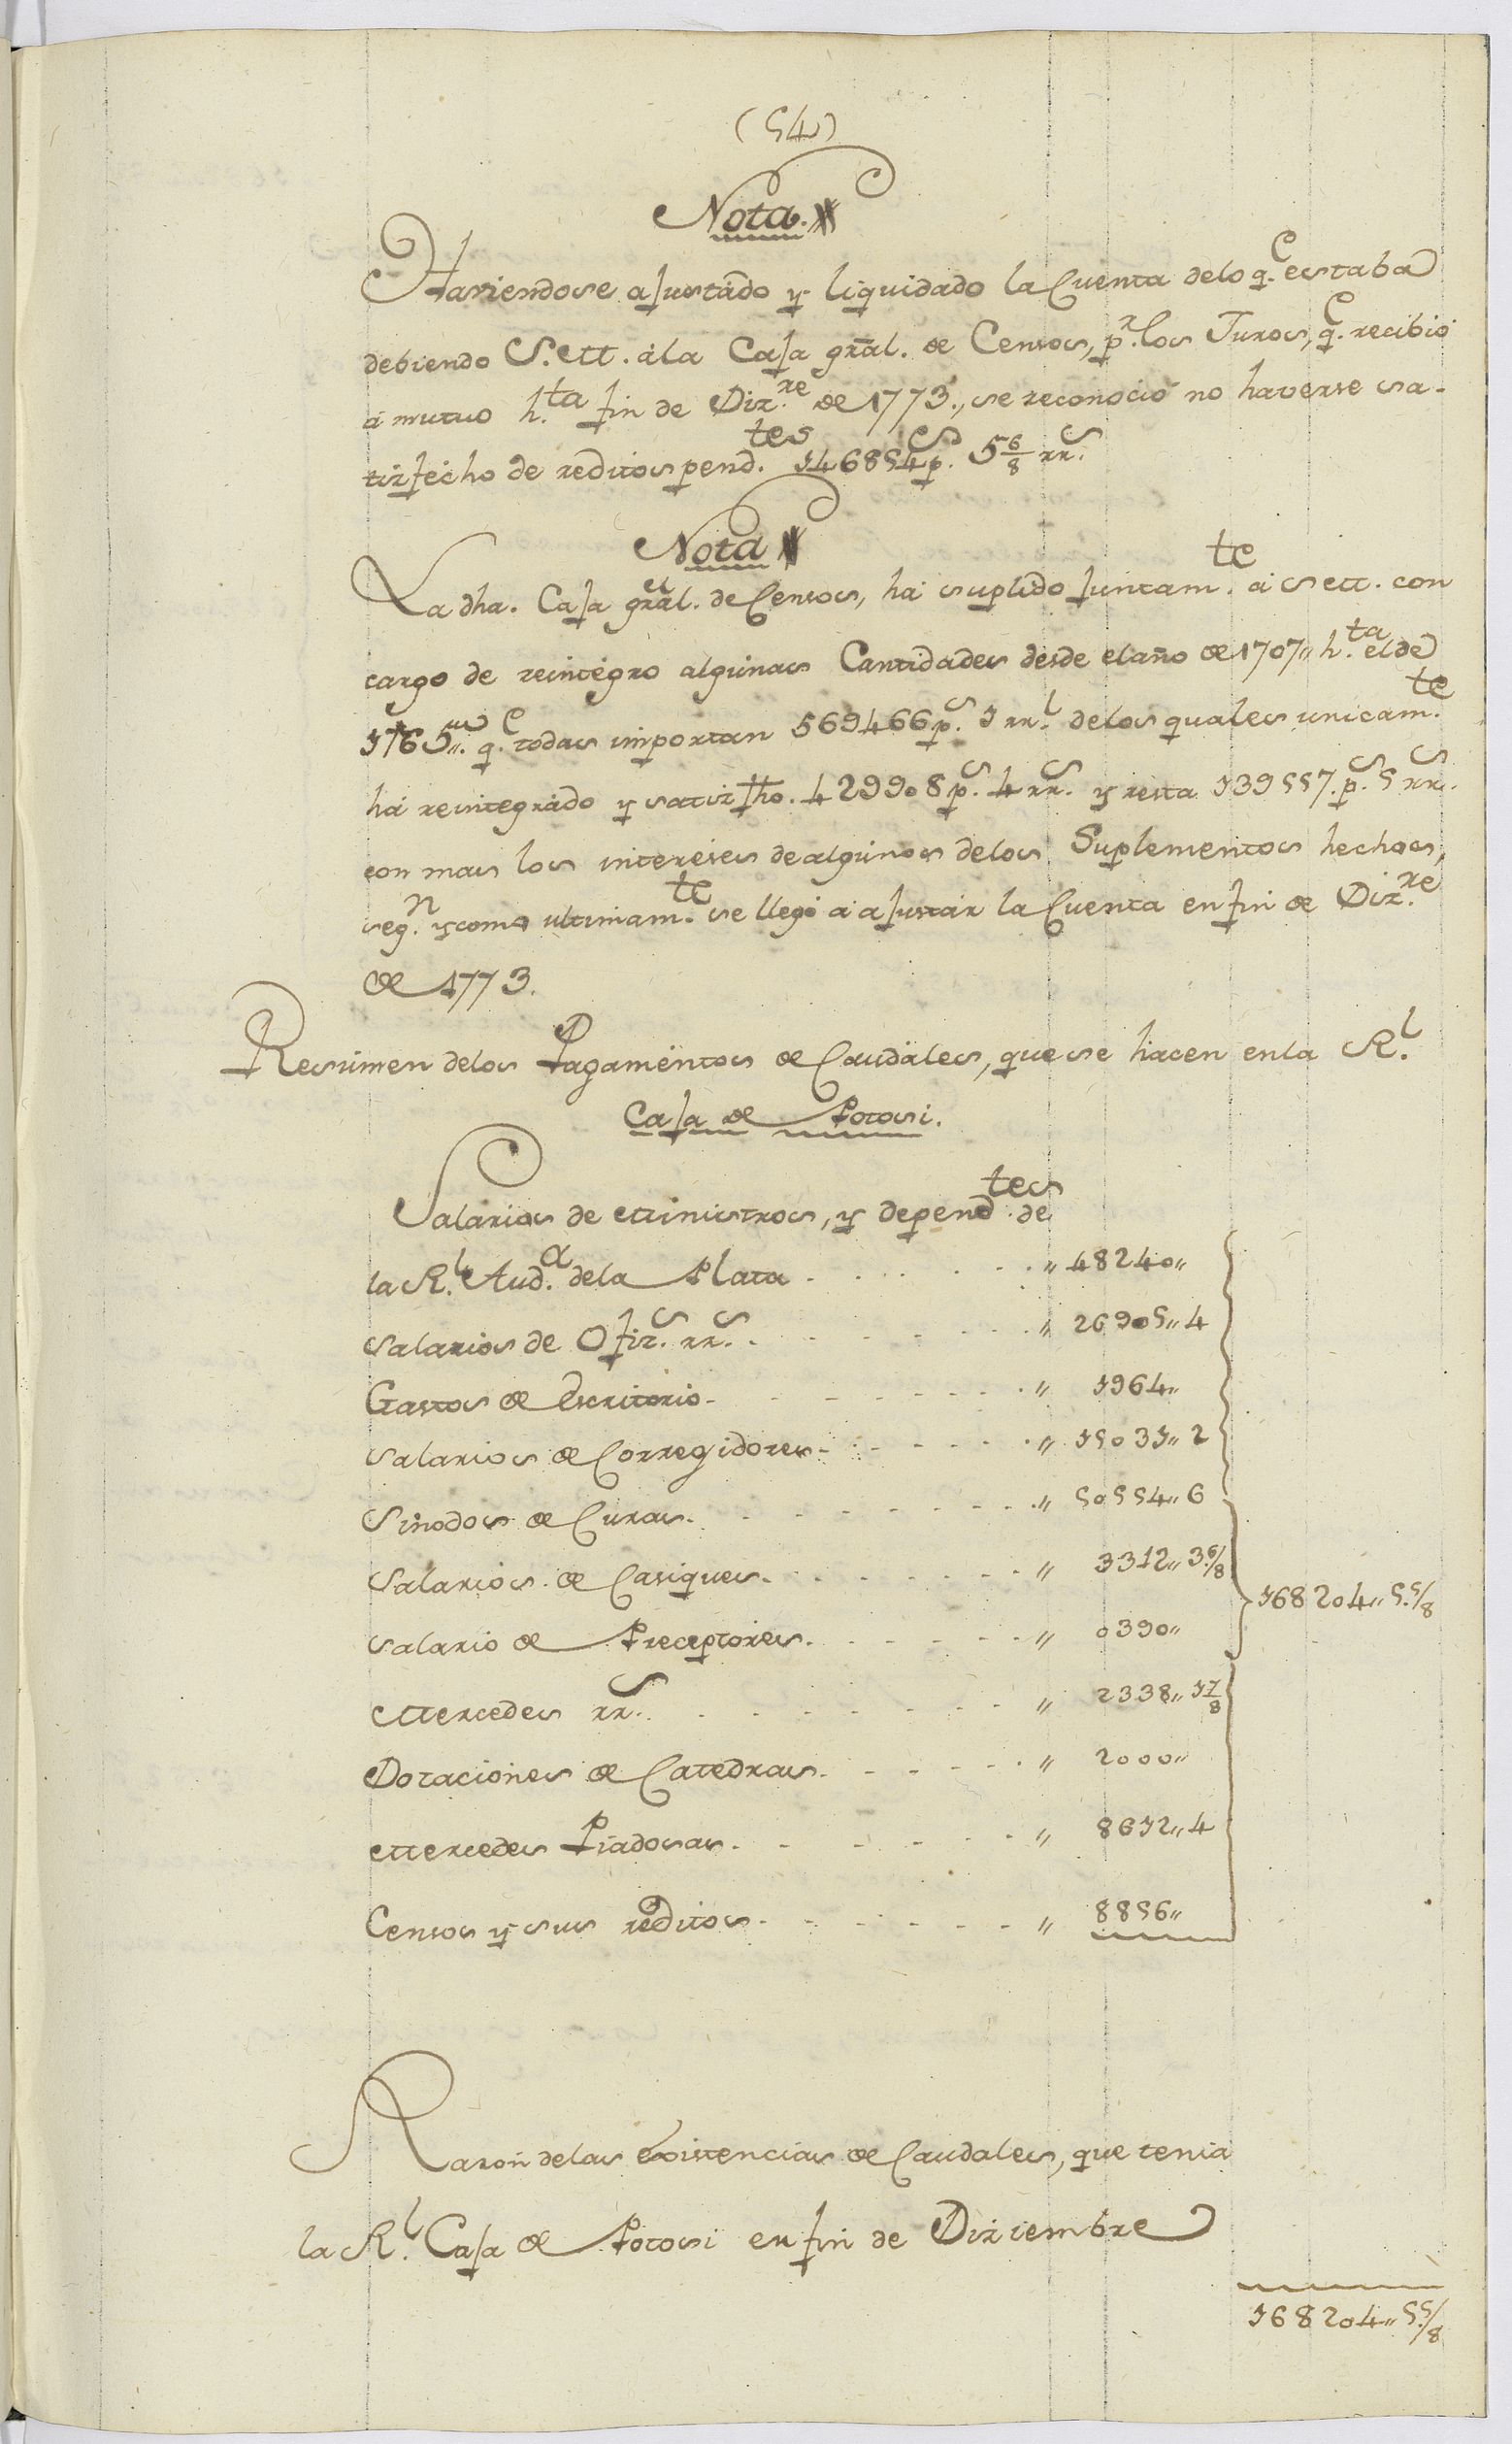 (54)
Nota.
Haviendose ajustado y liquidado la Cuenta delo q.e estaba
debiendo S. M. á la Caja gral. de Censos, p.r los Juros, q.e recibió
á mutuo h.ta fin de Diz.re de 1773., se reconoció no haverse sa-
tisfecho de reditos pend.tes 146854 p.s 5 6/8 rr.s
Nota
La dha. Caja gral. de Censos, há suplido juntam.te á S M. con
cargo de reintegro algunas Cantidades desde el año de 1707,, h.ta el de
1765,, q.e todas importan 569466 p.s 1 rr.l delos quales unicam.te
há reintegrado y satisfho. 429908 p.s 4 rr.s y resta 139557. p.s 5 rr.s
con mas los intereses de algunos delos Suplementos hechos,
seg.n y como ultimam.te se llegó á ajustar la Cuenta en fin de Diz.re
de 1773.
Resumen delos Pagamentos de Caudales, que se hacen en la R.l
Caja de Potosi.
Salarios de Ministros, y depend.tes de
la R.l Aud.a dela Plata . . . . . . . ,, 48240,,
Salarios de Ofiz.s rr.s . . . . . . . ,, 26905,, 4
Gastos de Escritorio - - - - - - . ,, 1964,,
Salarios de Corregidores - - - - - . ,, 15031,, 2
Sinodos de Curas. - - - - - - . ,, 50554,, 6
Salarios de Casiques. . . . . . . ,, 3312,, 3. 6/8
Salario de Preceptores. - - - - - ,, 0390,,
168204,, 5. 5/8
Mercedes rr.s . . . . . . . ,, 2338,, 1 7/8
Dotaciones de Catedras. - - - - . ,, 2000,,
Mercedes Piadosas. - - - - - . ,, 8612,, 4
Censos y sus réditos - - - - - - ,, 8856,,
Razon delas existencias de Caudales, que tenia
la R.l Caja de Potosi en fin de Diziembre
168204,, 5. 5/8